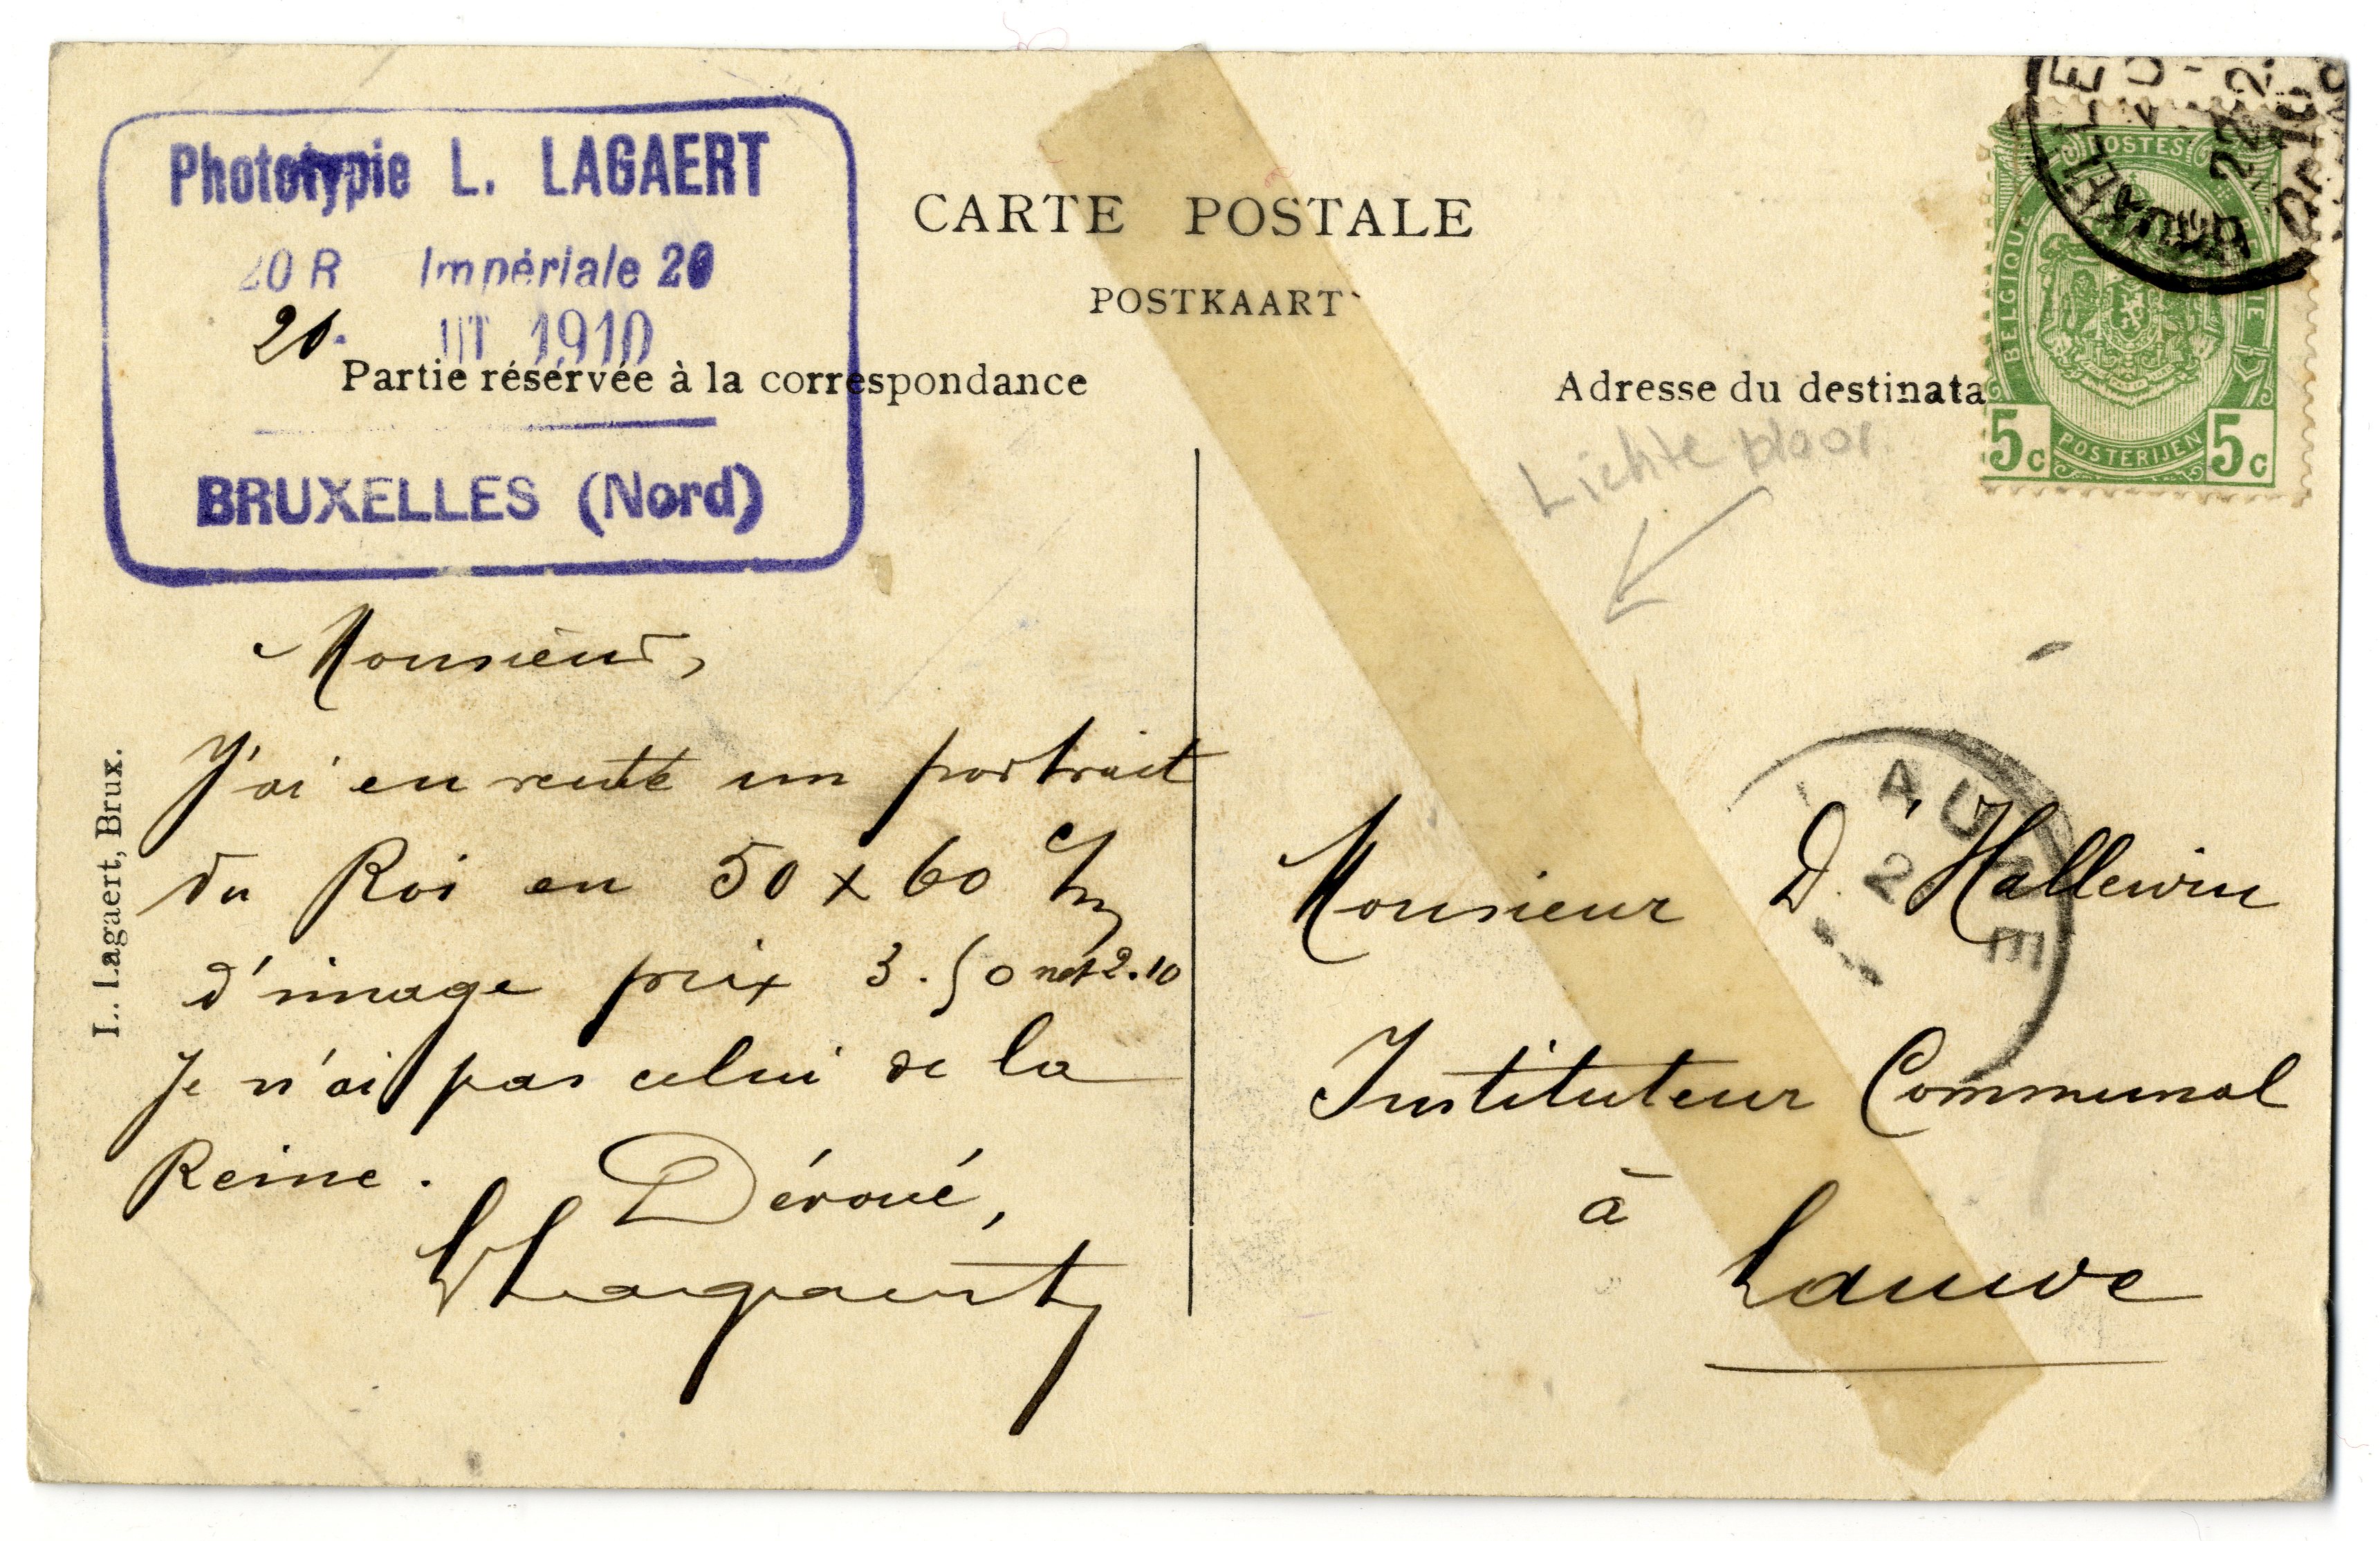 Phototypie L. LAGAERT
20 R Impériale 20
21. 1910
BRUXELLES (Nord)
CARTE POSTALE
POSTKAART
Partie réservée à la correspondance
Adresse du destinata
POSTES
BELGIQUE
5c POSTERIJEN 5c
BRUXELLES
22
10
Lichte
Monsieur,
J'ai en vente un portrait
du Roi en 50 x 60 c/m
d'image prix 3.50 net 2.10
Je n'ai pas celui de la
Reine. Dévoué,
LLagaert
L. Lagaert, Brux.
AUWE
2
Monsieur D'Hallewin
Instituteur Communal
à
Lauwe